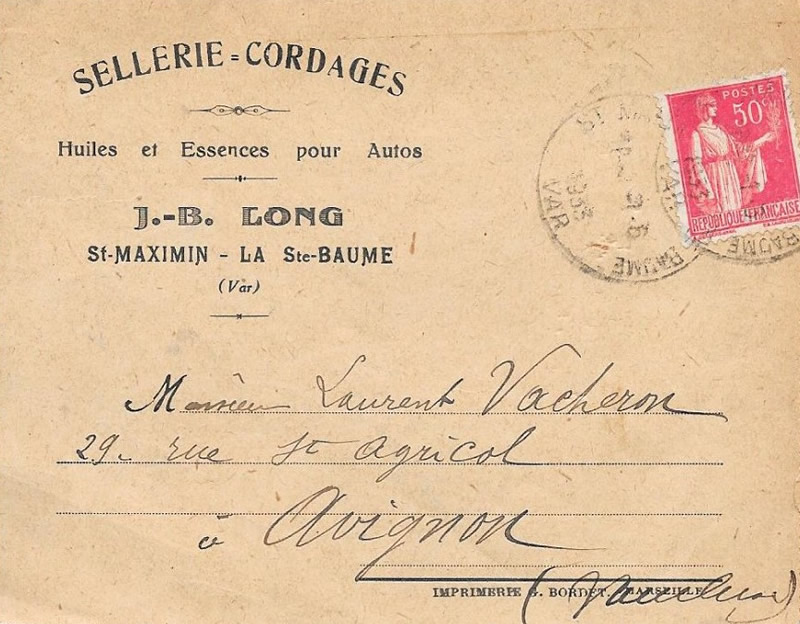 SELLERIE = CORDAGES
Huiles et Essences pour Autos
J.-B. LONG
St-MAXIMIN - LA Ste-BAUME
(Var)
POSTES
50c
RÉPUBLIQUE FRANÇAISE
1933
VAR
BAUME
BAUME
Monsieur Laurent Vacheron
29 - rue St Agricol
à Avignon
(Vaucluse)
IMPRIMERIE G. BORDET, MARSEILLE